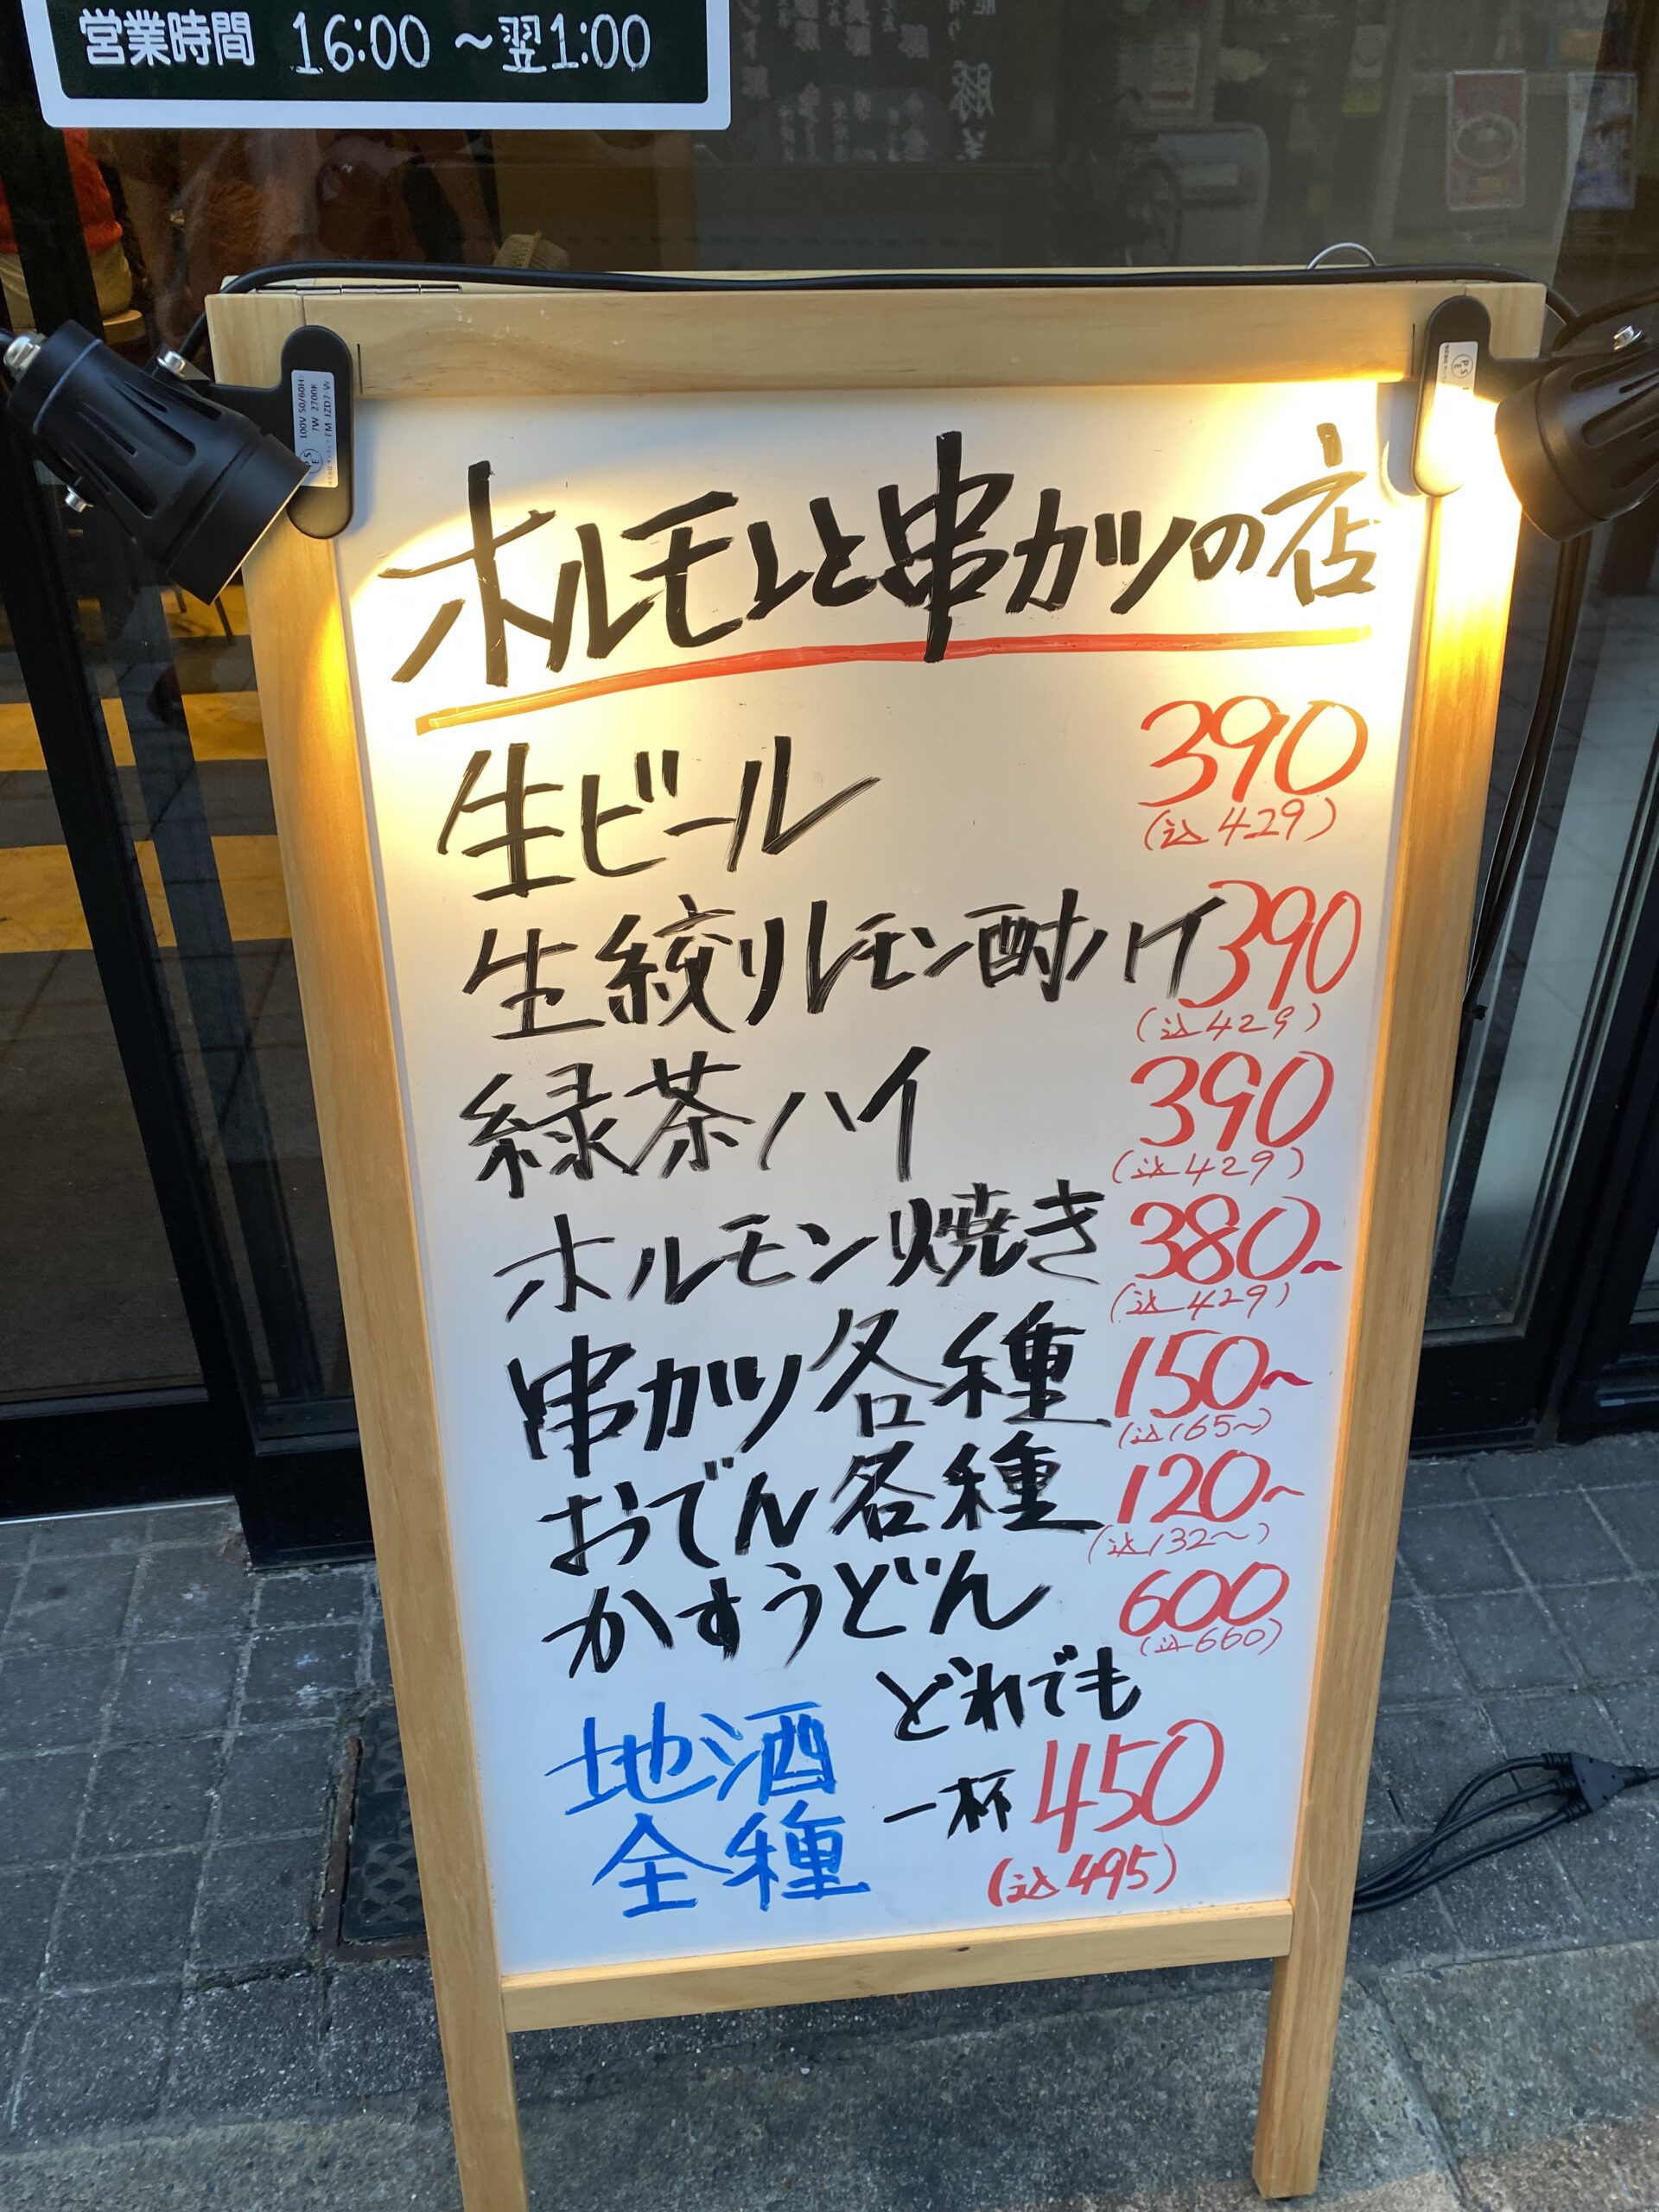 営業時間 16:00 ～翌1:00
ホルモンと串カツの店
生ビール 390
(込429)
生絞りレモン酎ハイ 390
(込429)
緑茶ハイ 390
(込429)
ホルモン焼き 380～
(込429)
串カツ各種 150～
(込165～)
おでん各種 120～
(込132～)
かすうどん 600
(込660)
地酒全種 どれでも
一杯 450
(込495)
100V 50/60H
7W 2700K